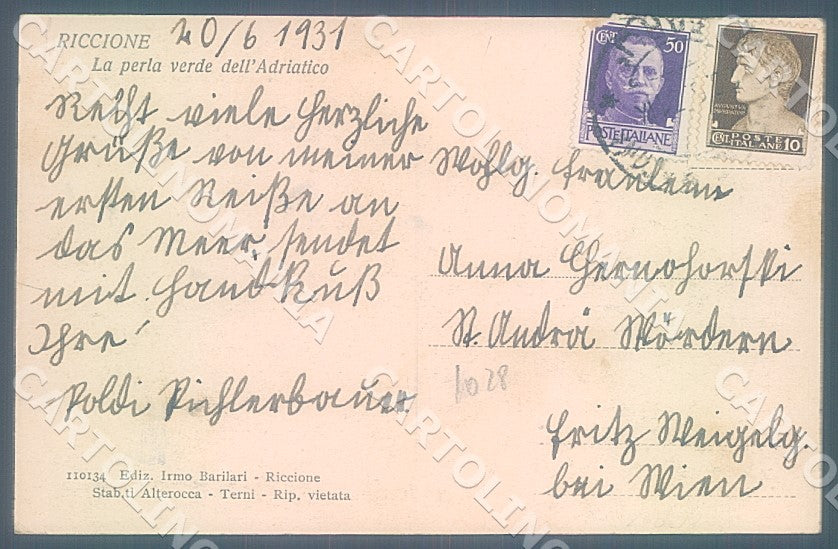 RICCIONE 20/6 1931
La perla verde dell'Adriatico
Recht viele herzliche
Grüße von meiner
ersten Reiße an
das Meer, sendet
mit Handkuß
Ihre
Poldi Pichlerbauer
110134 Ediz. Irmo Barilari - Riccione
Stab.ti Alterocca - Terni - Rip. vietata
CENT 50
POSTE ITALIANE
AVGVSTVS
CENT. POSTE ITALIANE 10
Wohlg. Fräulein
Anna Chernohorski
St. Andrä Wördern
1028
Fritz Weigelg.
bei Wien
CARTOLINOMANIA